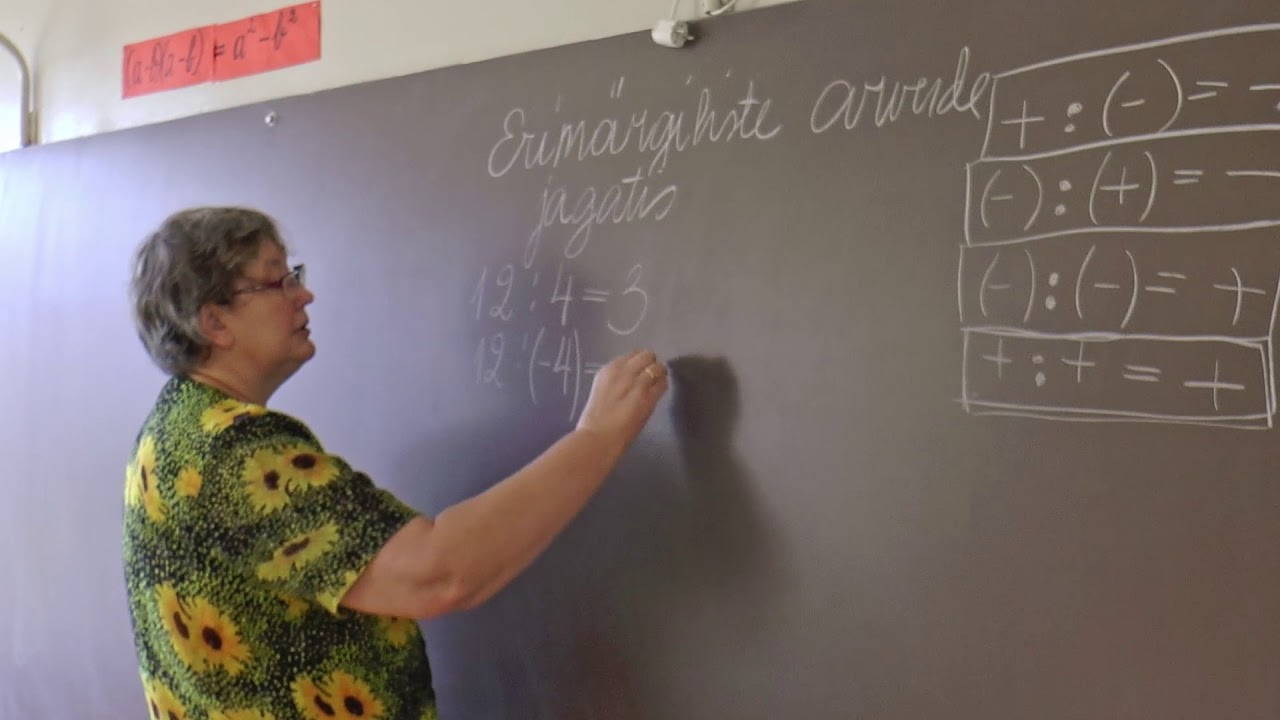 (a-b)(a-b) = a² - b²
Erimärgiliste arvude
jagatis
12 : 4 = 3
12 : (-4) =
+ : (-) = -
(-) : (+) = -
(-) : (-) = +
+ : + = +